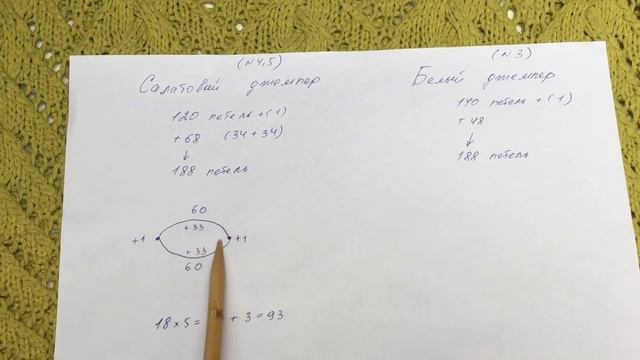 (N 4,5)
Салатовый джемпер
120 петель + (1)
+ 68 (34 + 34)
188 петель
60
+ 33
+1 +1
+ 33
60
18 × 5 = + 3 = 93
(N 3)
Белый джемпер
140 петель + (1)
+ 48
188 петель